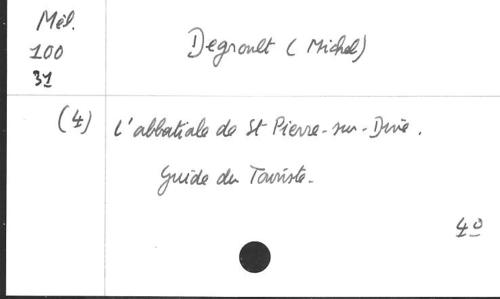 Mél.
100
31
Degroult (Michel)
(4) L'abbatiale de St Pierre-sur-Dive.
Guide du Touriste.
4º